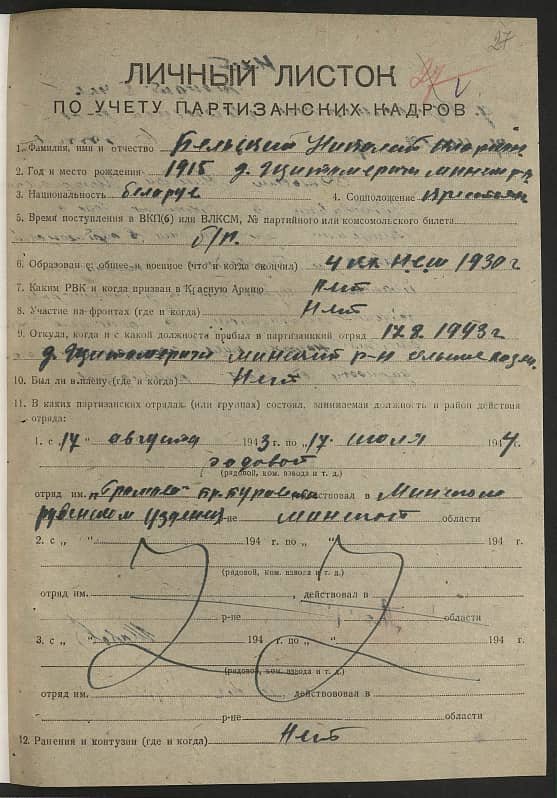 27
27
ЛИЧНЫЙ ЛИСТОК
ПО УЧЕТУ ПАРТИЗАНСКИХ КАДРОВ
1. Фамилия, имя и отчество Бельский Николай
2. Год и место рождения 1915 д. Минск
3. Национальность белорус 4. Соцположение
5. Время поступления в ВКП(б) или ВЛКСМ, № партийного или комсомольского билета
б/п.
6. Образован е общее и военное (что и когда окончил) 4 кл. Н.С.Ш 1930 г
7. Каким РВК и когда призван в Красную Армию Нет
8. Участие на фронтах (где и когда) Нет
9. Откуда, когда и с какой должности прибыл в партизанкий отряд 17.8. 1943 г
д. Минский р-н
10. Был ли в плену (где и когда) Нет
11. В каких партизанских отрядах (или группах) состоял, занимаемая должность и район действия
отряда:
1. с „17 “ августа 1943 г. по „17. июля 194 4 г.
рядовой
(рядовой, ком. взвода и т. д.)
отряд им. „Громова“ действовал в Минском
р-не области
2. с „ “ 194 г. по „ “ 194 г.
(рядовой, ком. взвода и т. д.)
отряд им. , действовал в
р-не области
3. с „ “ 194 г. по „ “ 194 г.
(рядовой, ком. взвода и т. д.)
отряд им. , действововал в
р-не области
12. Ранения и контузии (где и когда) Нет